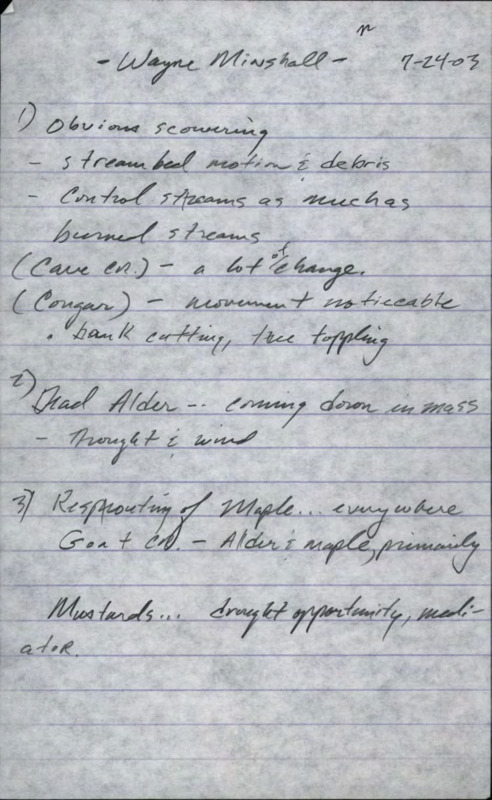 - Wayne Minshall - 7-24-03
1) Obvious scowering
- streambed motion & debris
- Control streams as much as
burned streams
(Cave cr.) - a lot of change.
(Cougar) - movement noticeable
• bank cutting, tree toppling
2) Dead Alder -- coming down in mass
- Drought & wind
3) Resprouting of Maple... everywhere
Goat cr. - Alder & maple, primarily
Mustards... drought opportunity, medi-
ator.